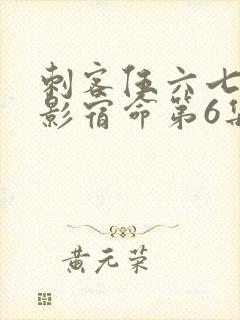 刺客伍六七
影宿命第6集
黄元荣